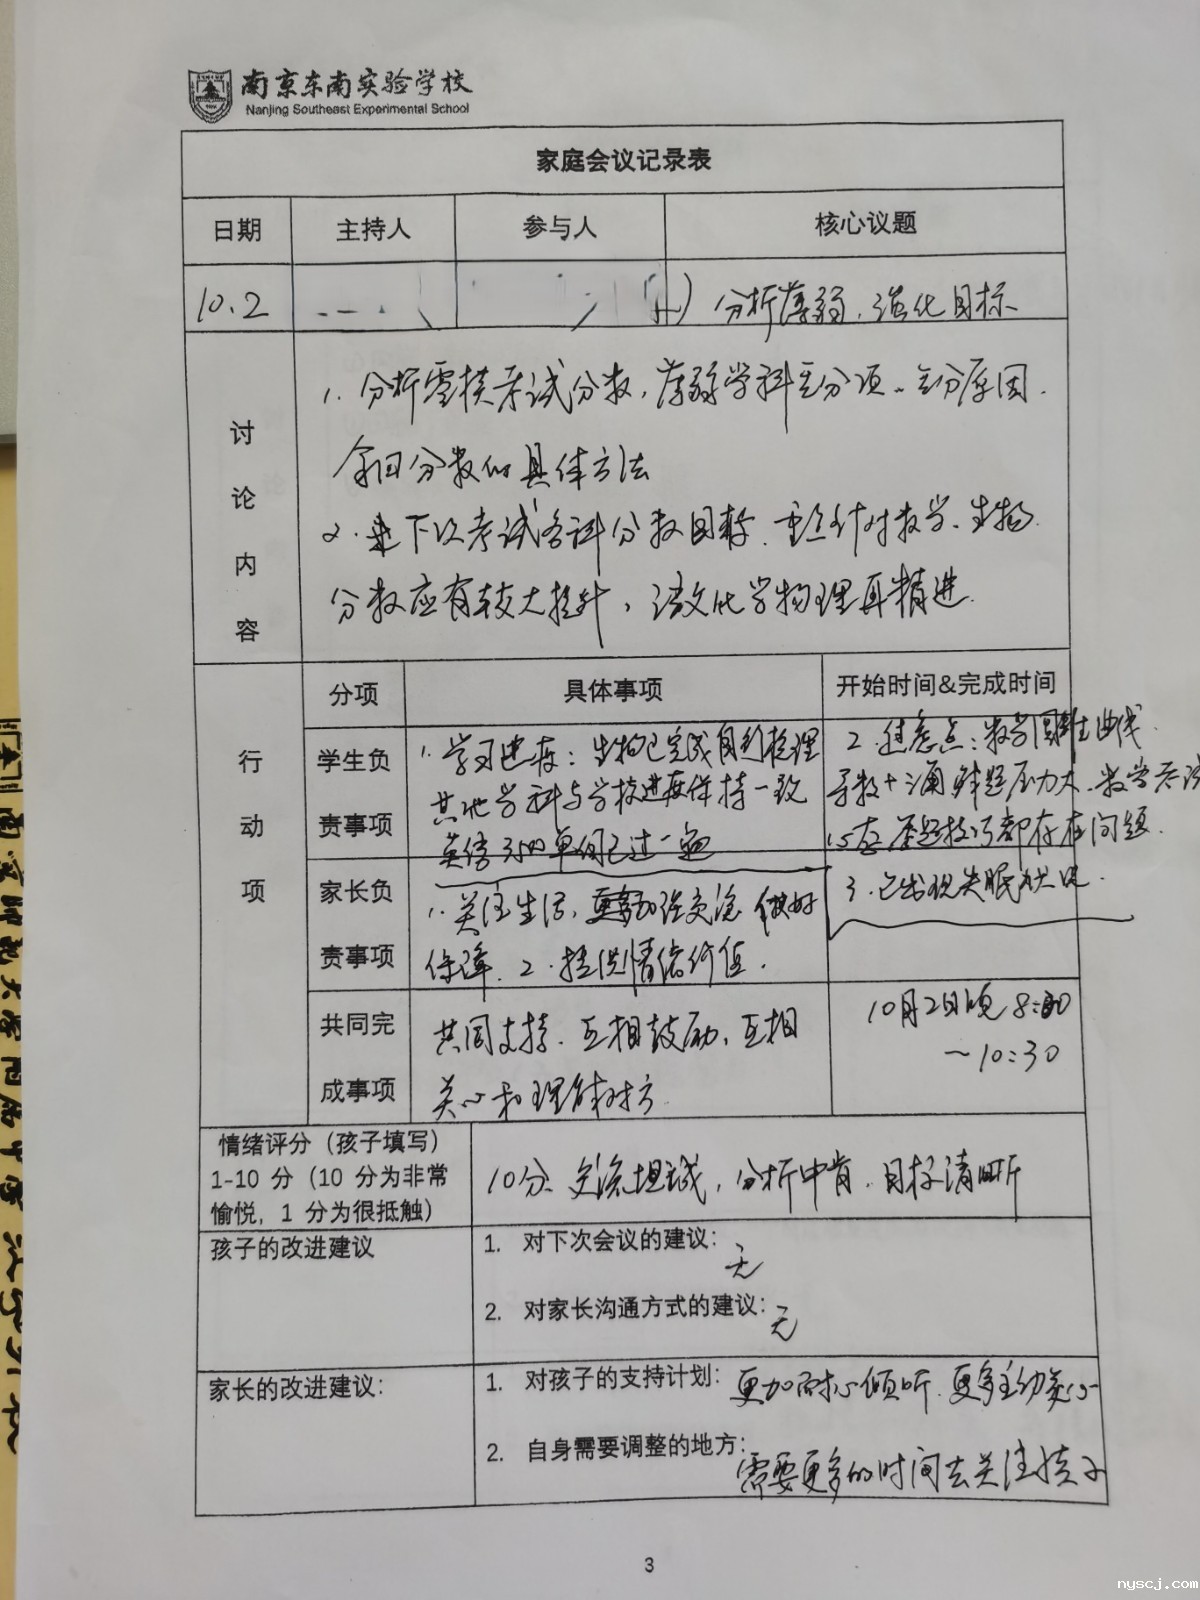 南京东南实验学校
Nanjing Southeast Experimental School
家庭会议记录表
日期 主持人 参与人 核心议题
10.2 分析薄弱、强化目标
讨论内容
1. 分析零模考试分数,薄弱学科 分项、 分原因.
拿回分数的具体方法
2. 下次考试各科分数目标.重点针对数学、生物
分数应有较大提升,语文化学物理再精进.
行动项
分项 具体事项 开始时间&完成时间
学生负责事项
1. 学习进度:生物已完成自我梳理
其他学科与学校进度保持一致
英语3500单词已过一遍
2. 焦虑点:数学圆锥曲线.
导数+ 解题压力大.数学考试
答题技巧都存在问题.
3. 已出现失眠状况.
家长负责事项
1. 关注生活,更多加强交流 做好
保障. 2. 提供情绪价值.
共同完成事项
共同支持.互相鼓励、互相
关心和理解对方.
10月2日晚8:00
~10:30
情绪评分(孩子填写)
1-10 分(10 分为非常
愉悦,1 分为很抵触)
10分、交流坦诚,分析中肯.目标清晰
孩子的改进建议
1. 对下次会议的建议:无
2. 对家长沟通方式的建议:无
家长的改进建议:
1. 对孩子的支持计划:更加耐心倾听.更多主动关心
2. 自身需要调整的地方:需要更多的时间去关注孩子
3
nyscj.com